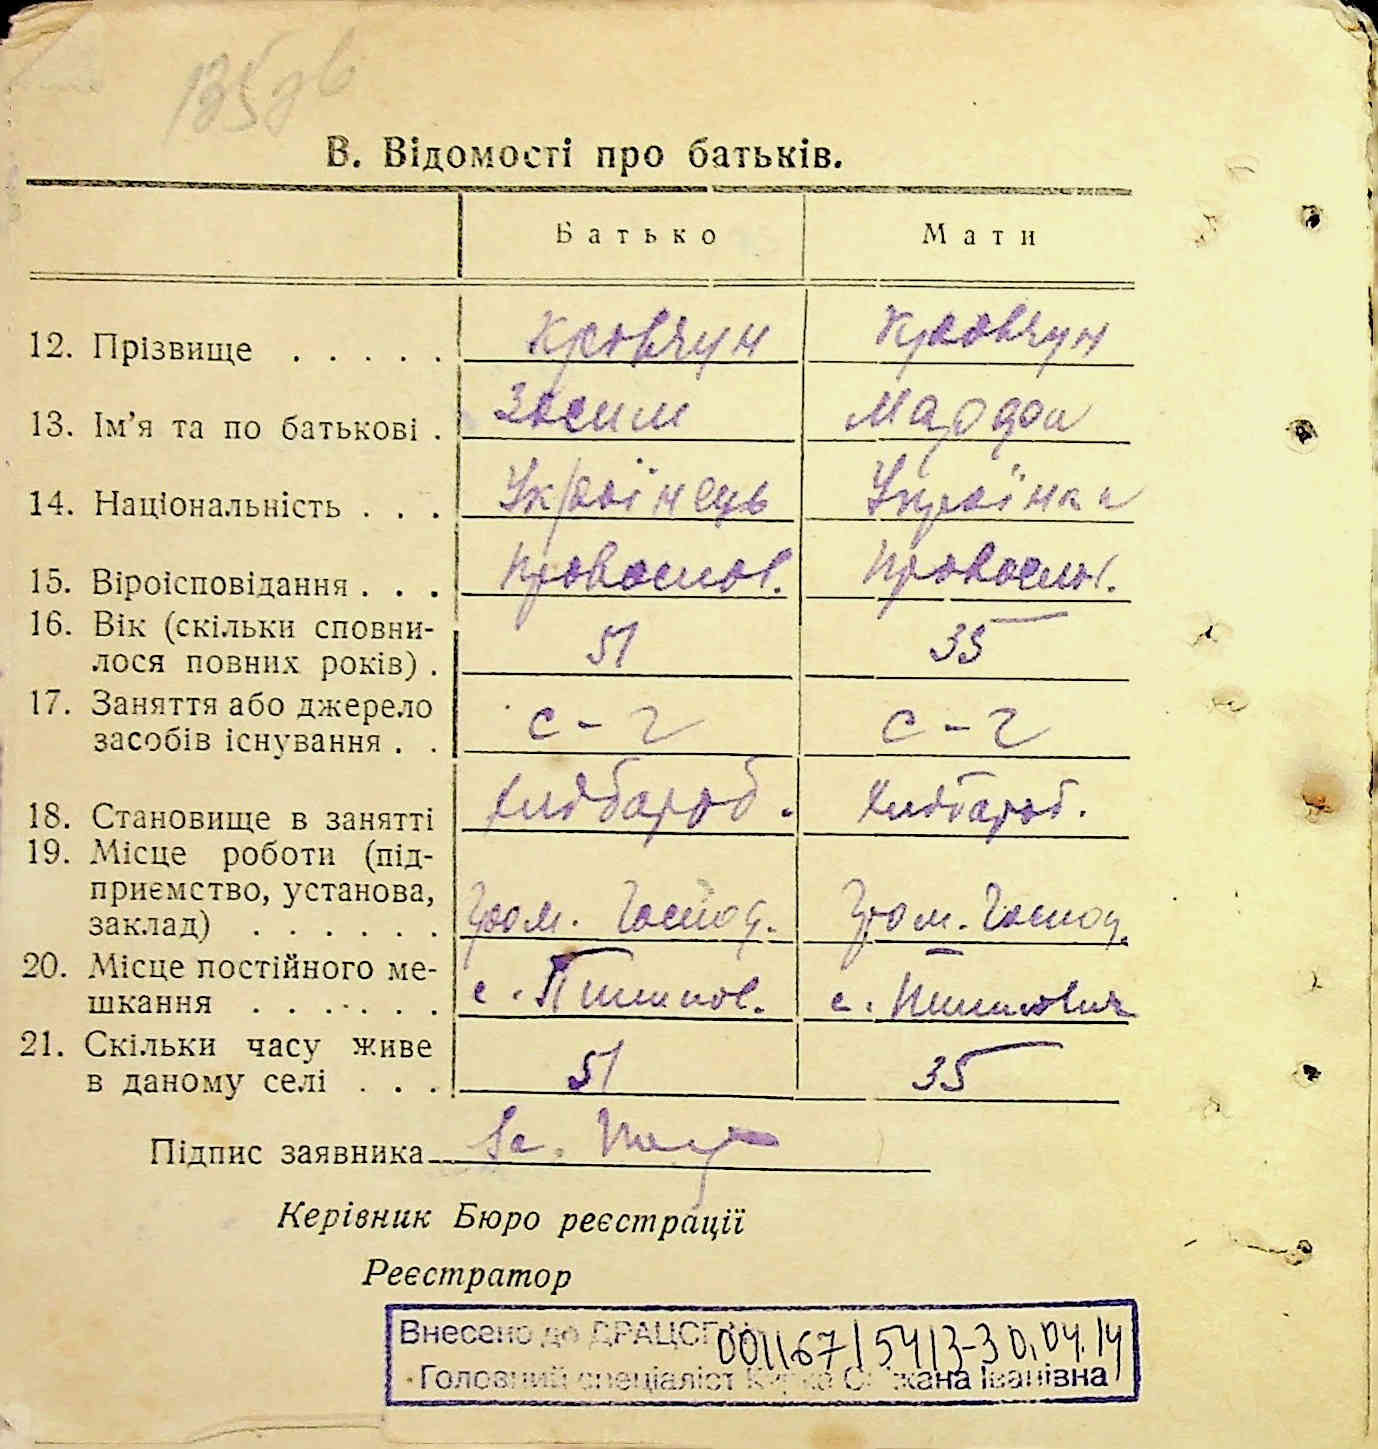 В. Відомості про батьків.
Батько Мати
12. Прізвище . . . . . Кровчун Кровчун
13. Ім’я та по батькові . Зосим
14. Національність . . . Українець Українка
15. Віроісповідання . . . Провослов. Провослов.
16. Вік (скільки сповни-
лося повних років) . 51 35
17. Заняття або джерело
засобів існування . . с-г с-г
18. Становище в занятті Хлібароб. Хлібароб.
19. Місце роботи (під-
приємство, установа,
заклад) . . . . . . Гром. Господ. Гром. Господ.
20. Місце постійного ме-
шкання . . . . . . с. с.
21. Скільки часу живе
в даному селі . . . 51 35
Підпис заявника
Керівник Бюро реєстрації
Реєстратор
Внесено до ДРАЦСГ 001167/5413-30.04.14
Головний спеціаліст Іванівна